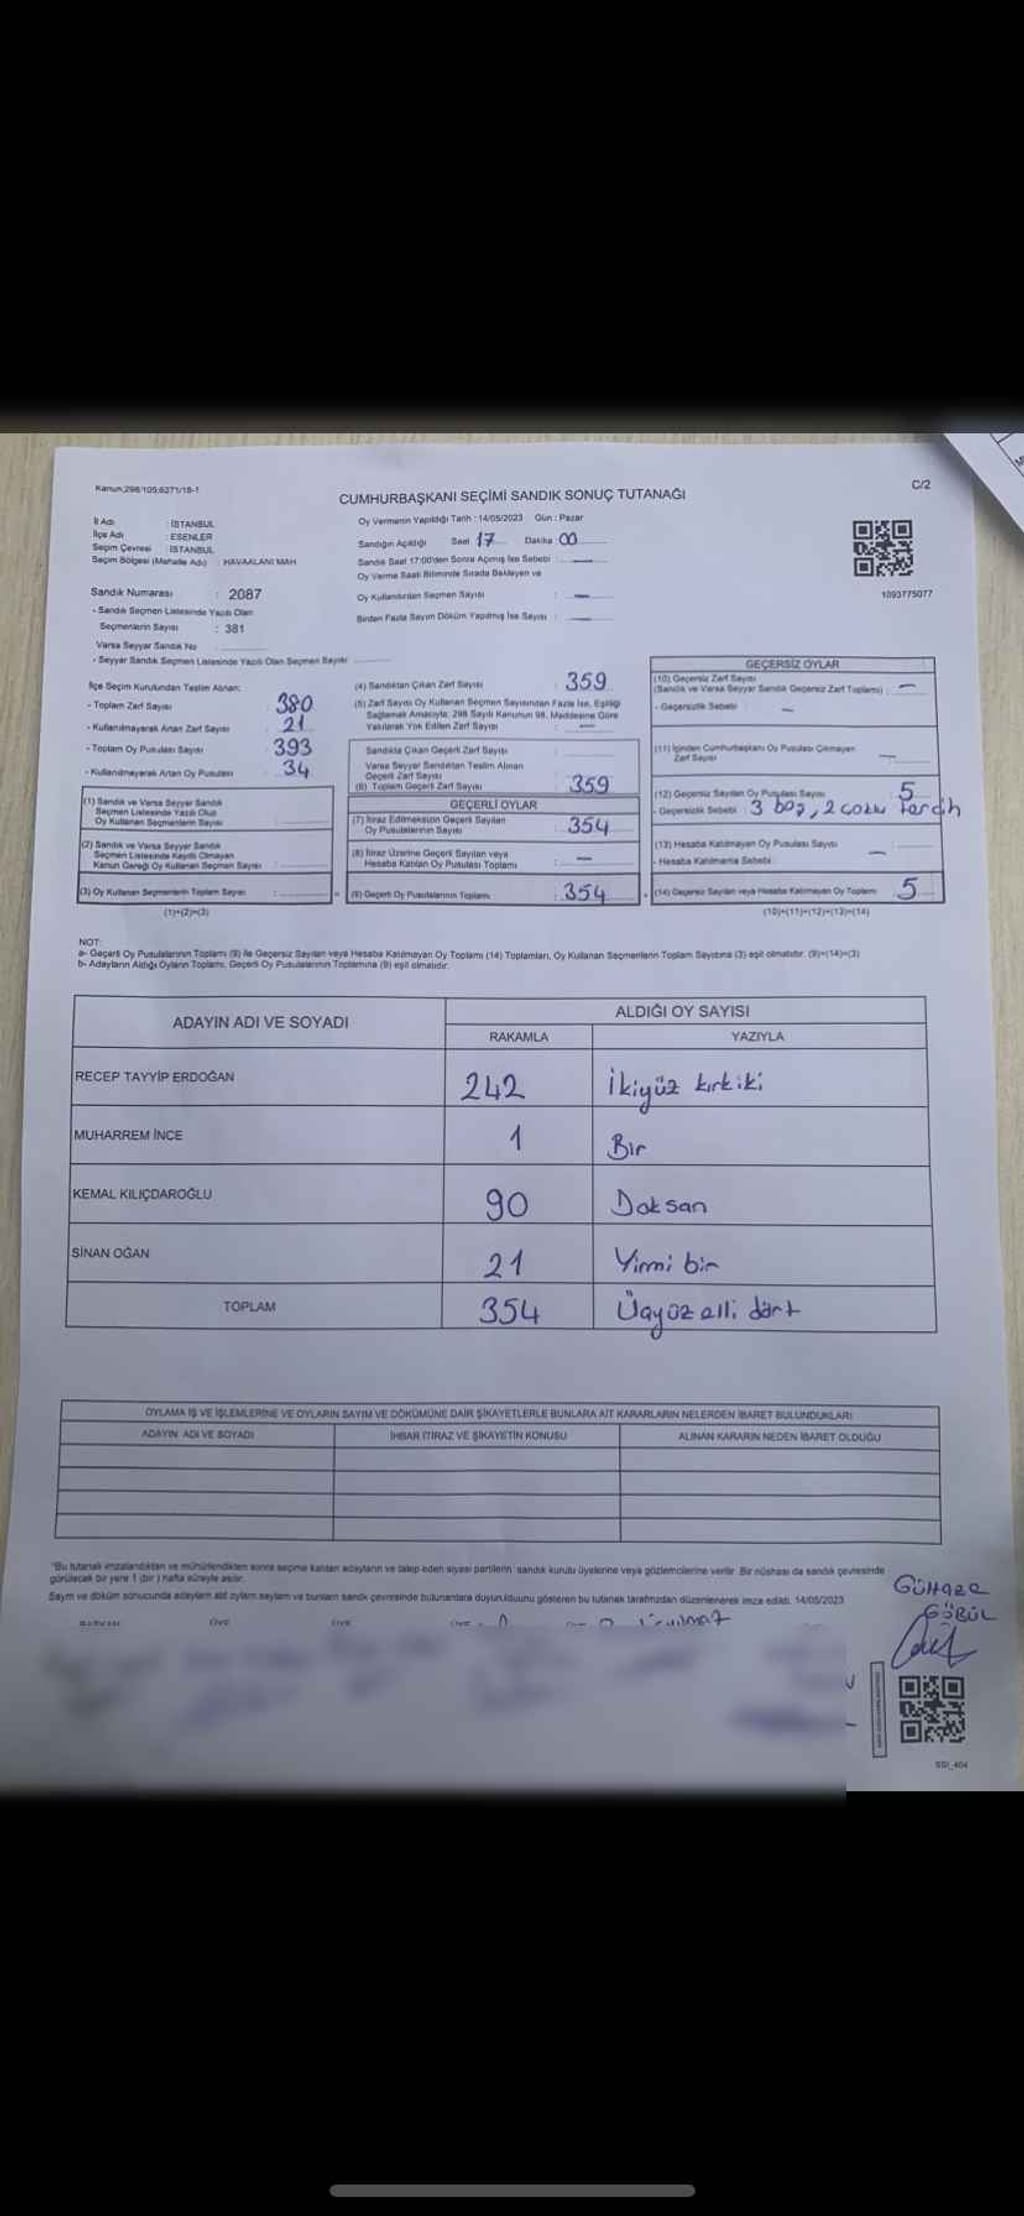 Kanun:298/105;6271/18-1
C/2
CUMHURBAŞKANI SEÇİMİ SANDIK SONUÇ TUTANAĞI
İl Adı : İSTANBUL
İlçe Adı : ESENLER
Seçim Çevresi : İSTANBUL
Seçim Bölgesi (Mahalle Adı) : HAVAALANI MAH
Sandık Numarası : 2087
- Sandık Seçmen Listesinde Yazılı Olan
Seçmenlerin Sayısı : 381
Varsa Seyyar Sandık No
- Seyyar Sandık Seçmen Listesinde Yazılı Olan Seçmen Sayısı
Oy Vermenin Yapıldığı Tarih : 14/05/2023 Gün : Pazar
Sandığın Açıldığı Saat 17 Dakika : 00
Sandık Saat 17:00'den Sonra Açılmış İse Sebebi : —
Oy Verme Saati Bitiminde Sırada Bekleyen ve
Oy Kullandırılan Seçmen Sayısı : —
Birden Fazla Sayım Döküm Yapılmış İse Sayısı : —
1093775077
İlçe Seçim Kurulundan Teslim Alınan:
- Toplam Zarf Sayısı : 380
- Kullanılmayarak Artan Zarf Sayısı : 21
- Toplam Oy Pusulası Sayısı : 393
- Kullanılmayarak Artan Oy Pusulası : 34
(1) Sandık ve Varsa Seyyar Sandık
Seçmen Listesinde Yazılı Olup
Oy Kullanan Seçmenlerin Sayısı
(2) Sandık ve Varsa Seyyar Sandık
Seçmen Listesinde Kayıtlı Olmayan
Kanun Gereği Oy Kullanan Seçmen Sayısı
(3) Oy Kullanan Seçmenlerin Toplam Sayısı :
(1)+(2)=(3)
(4) Sandıktan Çıkan Zarf Sayısı : 359
(5) Zarf Sayısı Oy Kullanan Seçmen Sayısından Fazla İse, Eşitliği
Sağlamak Amacıyla; 298 Sayılı Kanunun 98. Maddesine Göre
Yakılarak Yok Edilen Zarf Sayısı : —
Sandıkta Çıkan Geçerli Zarf Sayısı
Varsa Seyyar Sandıktan Teslim Alınan
Geçerli Zarf Sayısı
(6) Toplam Geçerli Zarf Sayısı : 359
GEÇERLİ OYLAR
(7) İtiraz Edilmeksizin Geçerli Sayılan
Oy Pusulalarının Sayısı : 354
(8) İtiraz Üzerine Geçerli Sayılan veya
Hesaba Katılan Oy Pusulası Toplamı : —
(9) Geçerli Oy Pusulalarının Toplamı : 354
GEÇERSİZ OYLAR
(10) Geçersiz Zarf Sayısı
(Sandık ve Varsa Seyyar Sandık Geçersiz Zarf Toplamı) : —
- Geçersizlik Sebebi : —
(11) İçinden Cumhurbaşkanı Oy Pusulası Çıkmayan
Zarf Sayısı —
(12) Geçersiz Sayılan Oy Pusulası Sayısı : 5
- Geçersizlik Sebebi : 3 boş, 2 çoklu tercih
(13) Hesaba Katılmayan Oy Pusulası Sayısı : —
- Hesaba Katılmama Sebebi
(14) Geçersiz Sayılan veya Hesaba Katılmayan Oy Toplamı : 5
(10)+(11)+(12)+(13)=(14)
NOT:
a- Geçerli Oy Pusulalarının Toplamı (9) ile Geçersiz Sayılan veya Hesaba Katılmayan Oy Toplamı (14) Toplamları, Oy Kullanan Seçmenlerin Toplam Sayısına (3) eşit olmalıdır. (9)+(14)=(3)
b- Adayların Aldığı Oyların Toplamı, Geçerli Oy Pusulalarının Toplamına (9) eşit olmalıdır.
ADAYIN ADI VE SOYADI
ALDIĞI OY SAYISI
RAKAMLA YAZIYLA
RECEP TAYYİP ERDOĞAN 242 İkiyüz kırkiki
MUHARREM İNCE 1 Bir
KEMAL KILIÇDAROĞLU 90 Doksan
SİNAN OĞAN 21 Yirmi bir
TOPLAM 354 Üçyüz elli dört
OYLAMA İŞ VE İŞLEMLERİNE VE OYLARIN SAYIM VE DÖKÜMÜNE DAİR ŞİKAYETLERLE BUNLARA AİT KARARLARIN NELERDEN İBARET BULUNDUKLARI
ADAYIN ADI VE SOYADI İHBAR İTİRAZ VE ŞİKAYETİN KONUSU ALINAN KARARIN NEDEN İBARET OLDUĞU
"Bu tutanak imzalandıktan ve mühürlendikten sonra seçime katılan adayların ve talep eden siyasi partilerin sandık kurulu üyelerine veya gözlemcilerine verilir. Bir nüshası da sandık çevresinde
görülecek bir yere 1 (bir) hafta süreyle asılır.
Sayım ve döküm sonucunda adayların aldığı oyların sayısını ve bunların sandık çevresinde bulunanlara duyurulduğunu gösteren bu tutanak tarafımızdan düzenlenerek imza edildi. 14/05/2023
GÖBÜL